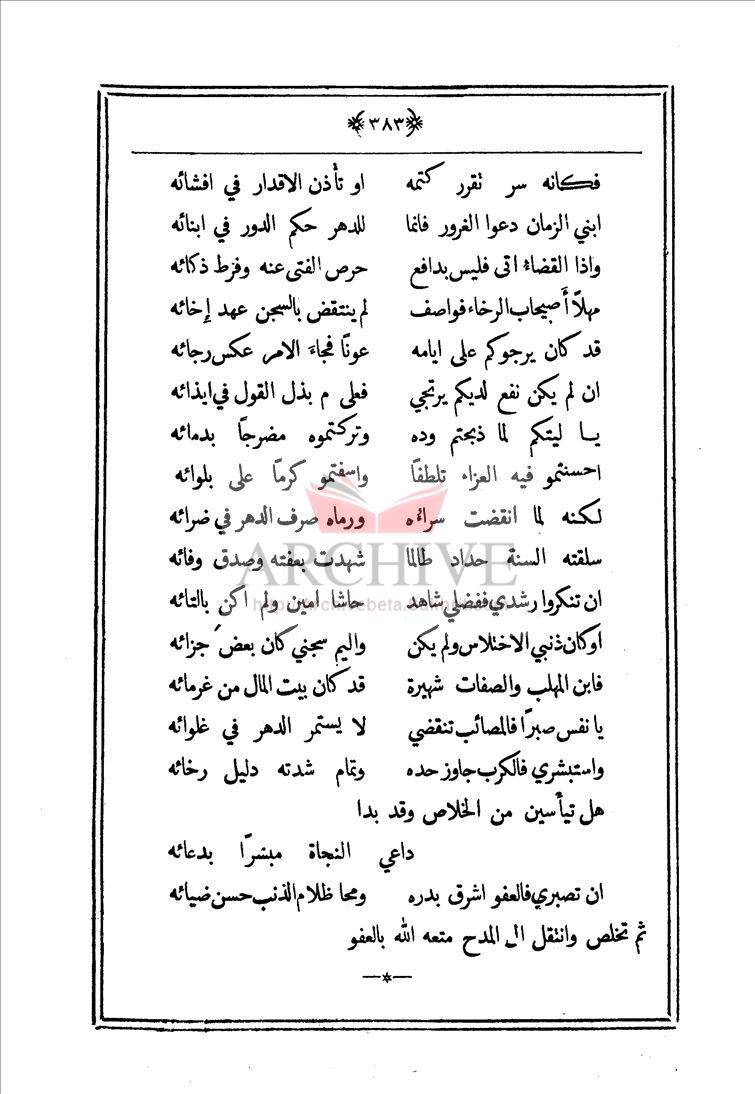 ﴿٣٨٣﴾
فكانه سر تقرر كتمه او تأذن الاقدار في افشائه
ابني الزمان دعوا الغرور فانما للدهر حكم الدور في ابنائه
واذا القضاء اتى فليس بدافع حرص الفتى عنه وفرط ذكائه
مهلًا أصيحاب الرخاء فواصف لم ينتقض بالسجن عهد إخائه
قد كان يرجوكم على ايامه عونًا فجاءَ الامر عكس رجائه
ان لم يكن نفع لديكم يرتجي فعلى م بذل القول في ايذائه
يا ليتكم لما ذبحتم وده وتركتموه مضرجًا بدمائه
احسنتمو فيه العزاء تلطفًا واسفتمو كرمًا على بلوائه
لكنه لما انقضت سراؤه ورماه صرف الدهر في ضرائه
سلقته السنة حداد طالما شهدت بعفته وصدق وفائه
ان تنكروا رشدي ففضلي شاهد حاشا امين ولم اكن بالتائه
اوكان ذنبي الاختلاس ولم يكن واليم سجني كان بعض جزائه
فابن المهلب والصفات شهيرة قد كان بيت المال من غرمائه
يا نفس صبرًا فالمصائب تنقضي لا يستمر الدهر في غلوائه
واستبشري فالكرب جاوز حده وتمام شدته دليل رخائه
هل تيأسين من الخلاص وقد بدا
داعي النجاة مبشرًا بدعائه
ان تصبري فالعفو اشرق بدره ومحا ظلام الذنب حسن ضيائه
ثم تخلص وانتقل الى المدح متعه الله بالعفو
ARCHIVE